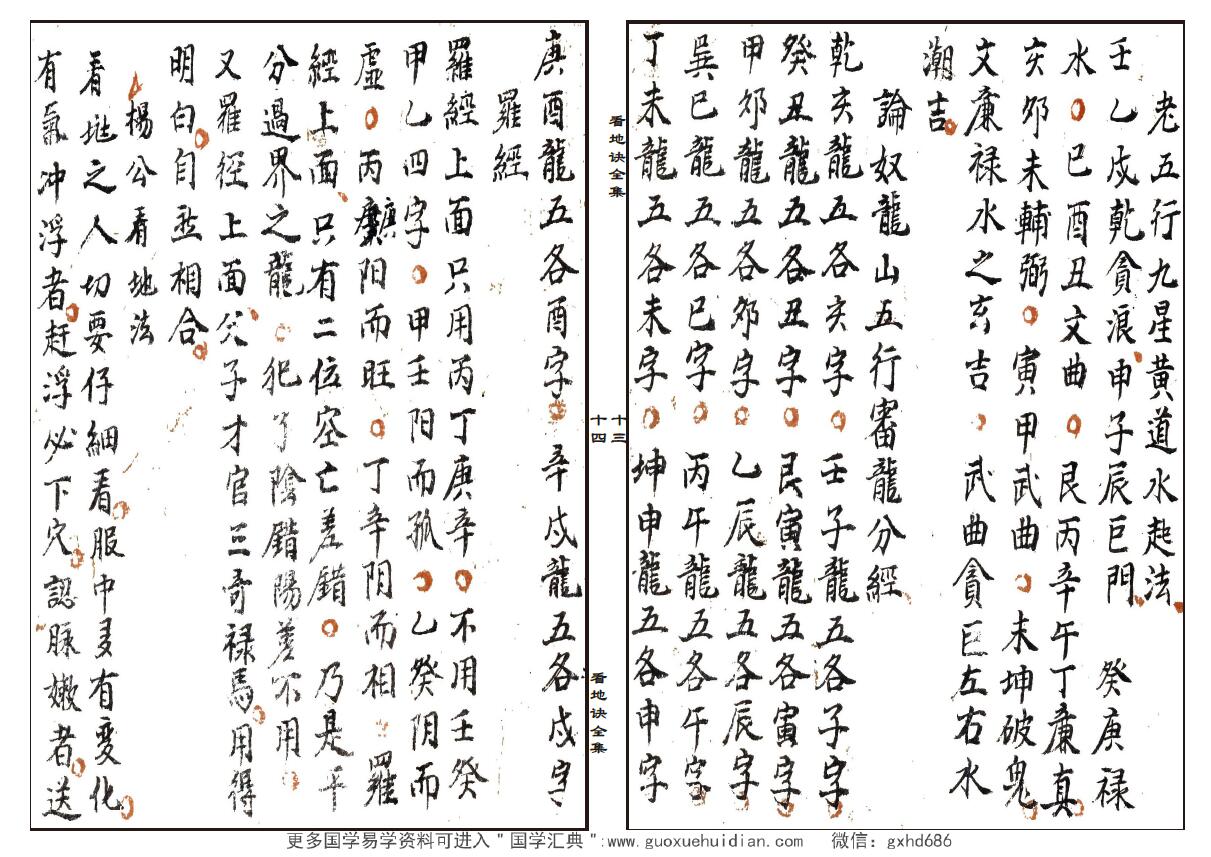 老五行九星黃道水起法
壬乙戍乾貪浪申子辰巨門 癸庚禄
水○巳酉丑文曲○艮丙辛午丁廉真
亥夘未輔弼○寅甲武曲○未坤破鬼
文廉禄水之玄吉○武曲貪巨左右水
潮吉
論奴龍山五行審龍分經
乾亥龍五各亥字○壬子龍五各子字
癸丑龍五各丑字○艮寅龍五各寅字
甲夘龍五各夘字○乙辰龍五各辰字
巽巳龍五各巳字○丙午龍五各午字
丁未龍五各未字○坤申龍五各申字
看地诀全集
十三
十四
看地诀全集
庚酉龍五各酉字○辛戍龍五各戍字
羅經
羅經上面只用丙丁庚辛○不用壬癸
甲乙四字○甲壬阳而孤○乙癸阴而
虛○丙庚阳而旺○丁辛阴而相 羅
經上面只有二位空亡差錯○乃是平
分過界之龍○犯了陰錯陽差不用
又羅徑上面父子才官三奇禄馬用得
明白自然相合
楊公看地法
看地之人切要仔細看服中多有变化
有氣冲浮者赶浮必下穴認脉嫩者送
更多国学易学资料可进入＂国学汇典＂:www.guoxuehuidian.com 微信：gxhd686